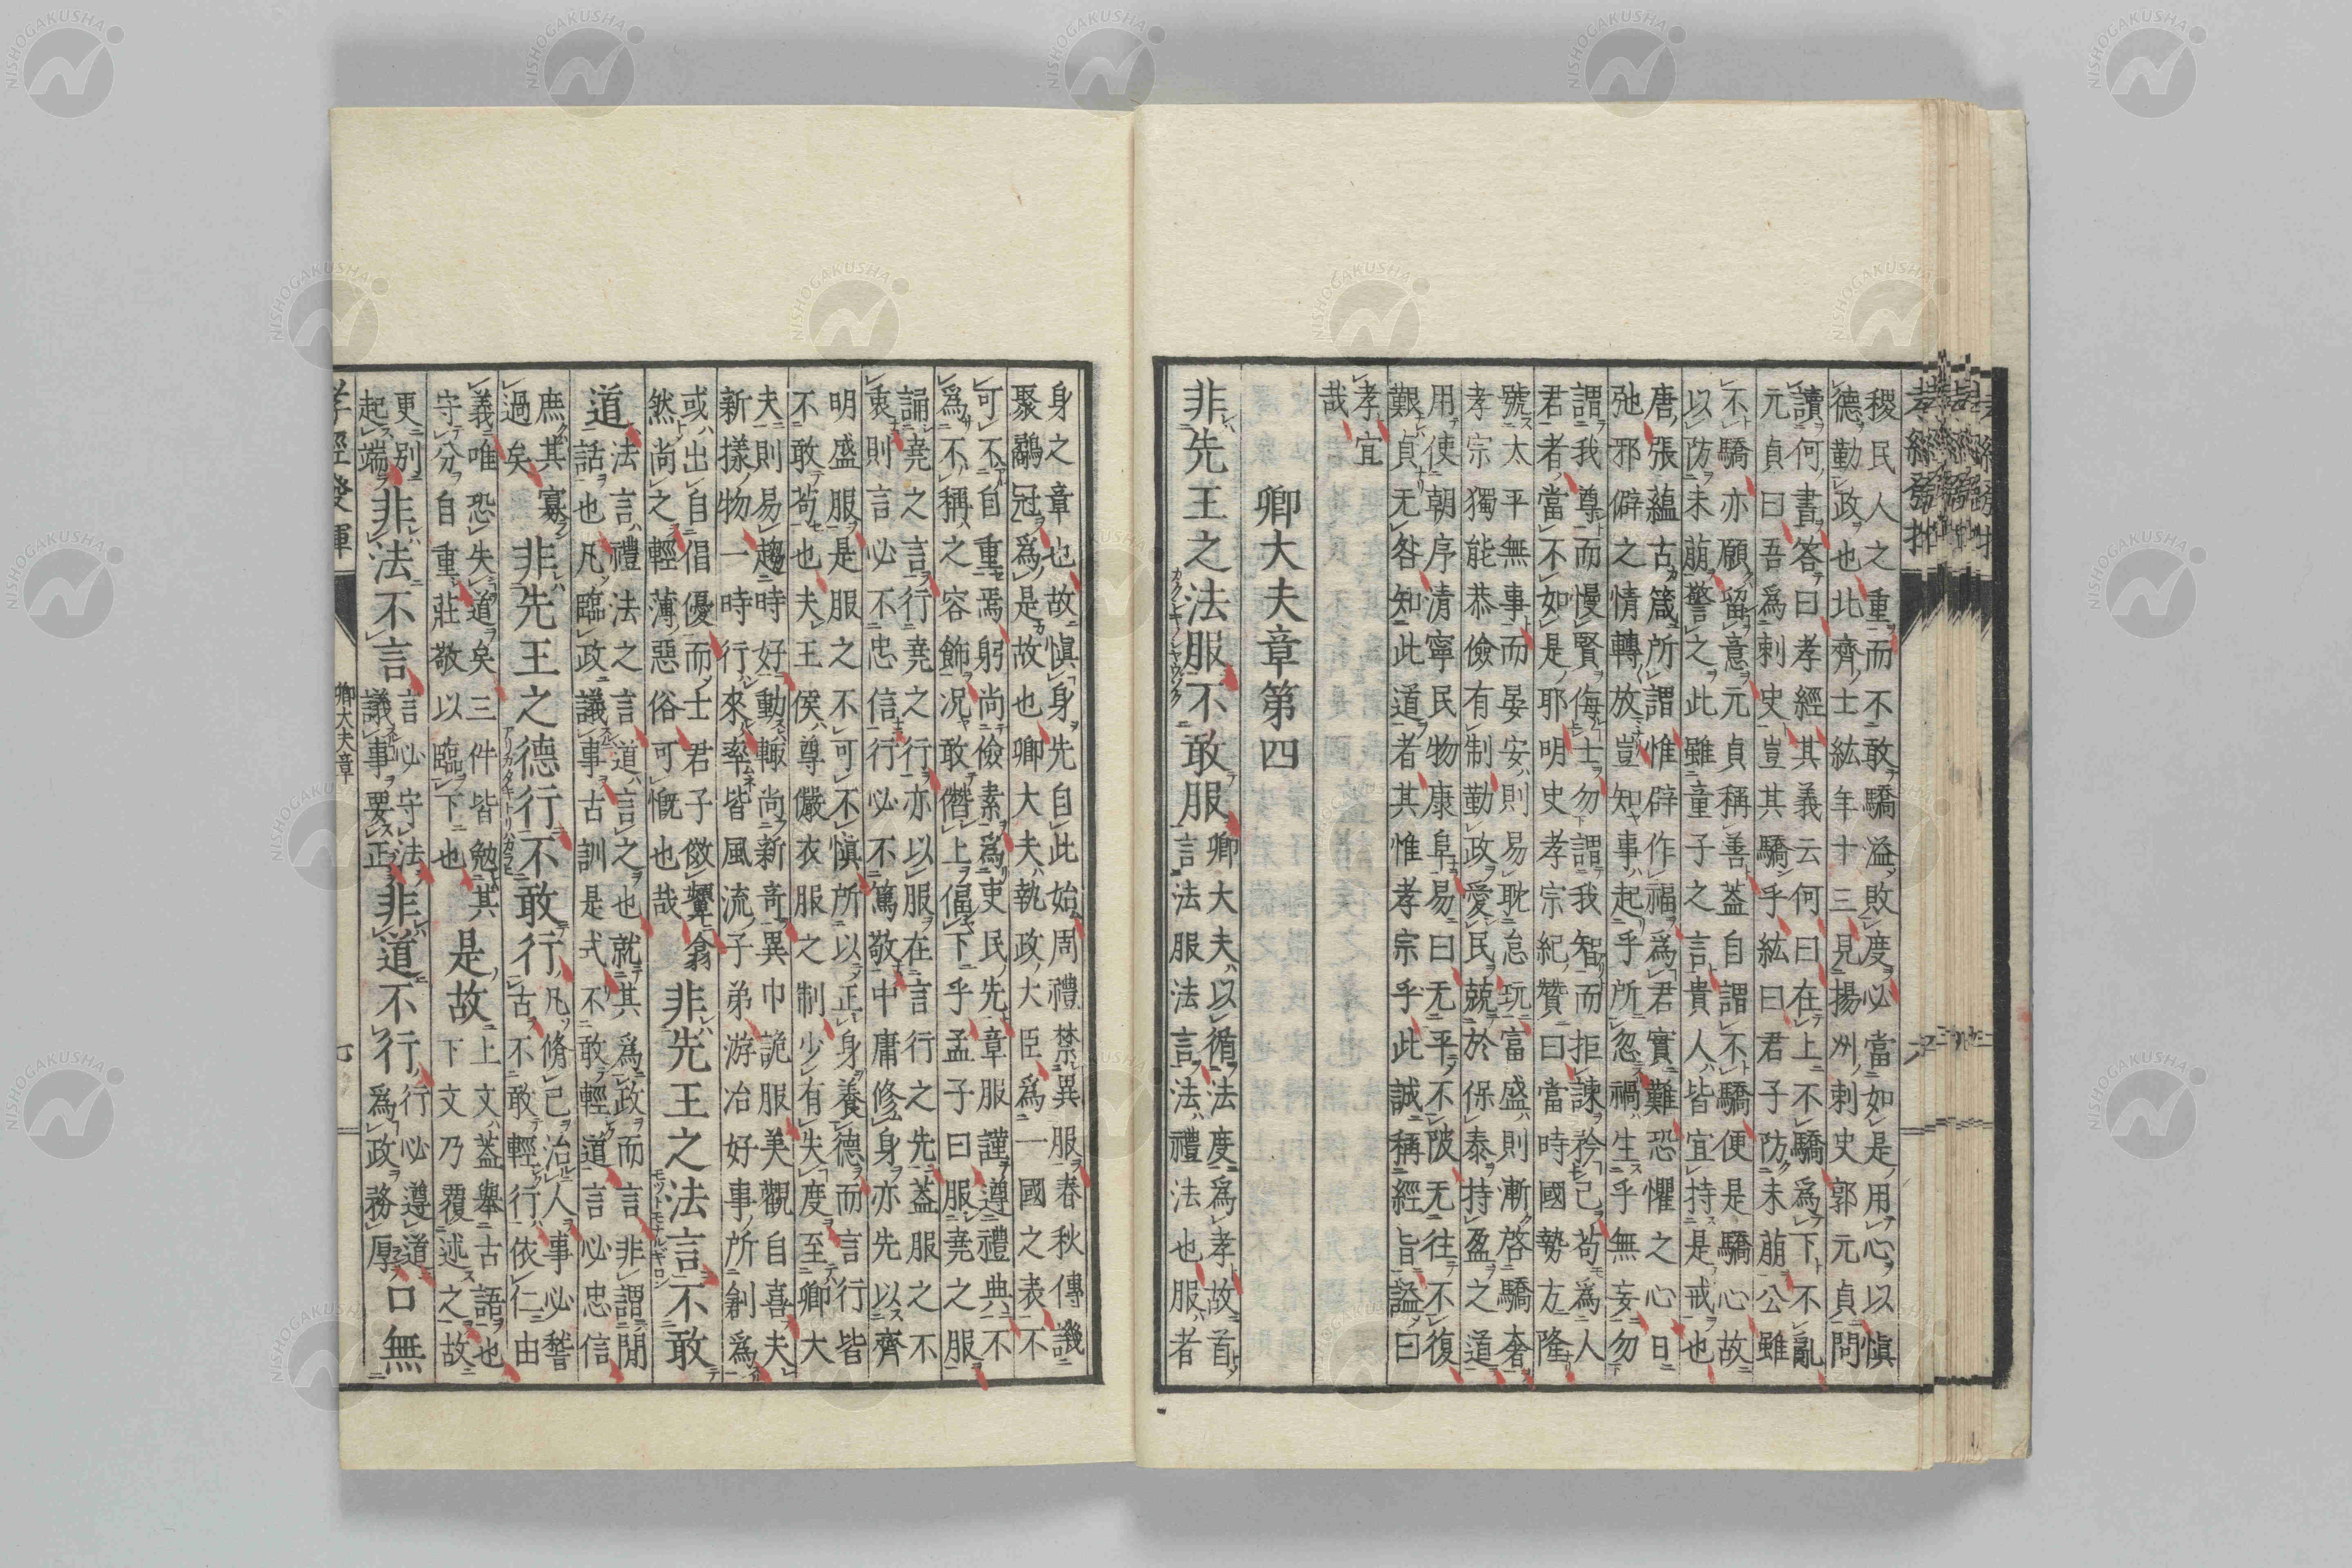 稷民人之重而不敢驕溢敗度必當如是用心以愼
德勤政也北齊士紘年十三見揚州刺史郭元貞問
讀何書答曰孝經其義云何曰在上不驕爲下不亂
元貞曰吾爲刺史豈其驕乎紘曰君子防未萠公雖
不驕亦願留意元貞稱善蓋自謂不驕便是驕心故
以防未萠警之此雖童子之言貴人皆宜持是戒也
唐張蘊古箴所謂惟辟作福爲君實難恐懼之心日
弛邪僻之情轉放豈知事起乎所忽禍生乎無妄勿
謂我尊而慢賢侮士勿謂我智而拒諫矜己苟爲人
君者當不如是耶明史孝宗紀贊曰當時國勢方隆
號太平無事而晏安則易耽怠玩富盛則漸啓驕奢
孝宗獨能恭儉有制勤政愛民兢於保泰持盈之道
用使朝序清寧民物康阜易曰无平不陂无往不復
艱貞无咎知此道者其惟孝宗乎此誠稱經旨謚曰
孝宜
哉
卿大夫章第四
非先王之法服不敢服
卿大夫以循法度爲孝故首
言法服法言法禮法也服者
身之章也故愼身先自此始周禮禁異服春秋傳譏
聚鷸冠爲是故也卿大夫執政大臣爲一國之表不
可不自重焉躬尚儉素爲吏民先章服謹遵禮典不
爲不稱之容飾况敢僭上偪下乎孟子曰服堯之服
誦堯之言行堯之行亦以服在言行之先蓋服之不
衷則言必不忠信行必不篤敬中庸修身亦先以齊
明盛服是服之不可不愼所以正身養德而言行皆
不敢苟也夫王侯尊儼衣服之制少有失度至卿大
夫則易趨時好動輙尚新奇異巾詭服美觀自喜夫
新樣物一時行來率皆風流子弟游冶好事所創爲
或出自倡優而士君子傚顰翕
然尚之輕薄惡俗可慨也哉
非先王之法言不敢
道
法言禮法之言道言之也就其爲政而言非謂閒
話也凡臨政議事古訓是式不敢輕道言必忠信
庶其寡
過矣
非先王之德行不敢行
凡脩己治人事必誓
古不敢輕行依仁由
義唯恐失道矣三件皆勉其
守分自重莊敬以臨下也
是故
上文蓋舉古語也
下文乃覆述之故
更別
起端
非法不言
言必守法
議事要正
非道不行
行必遵道
爲政務厚
口無
孝經發揮
卿大夫章
NISHOGAKUSHA